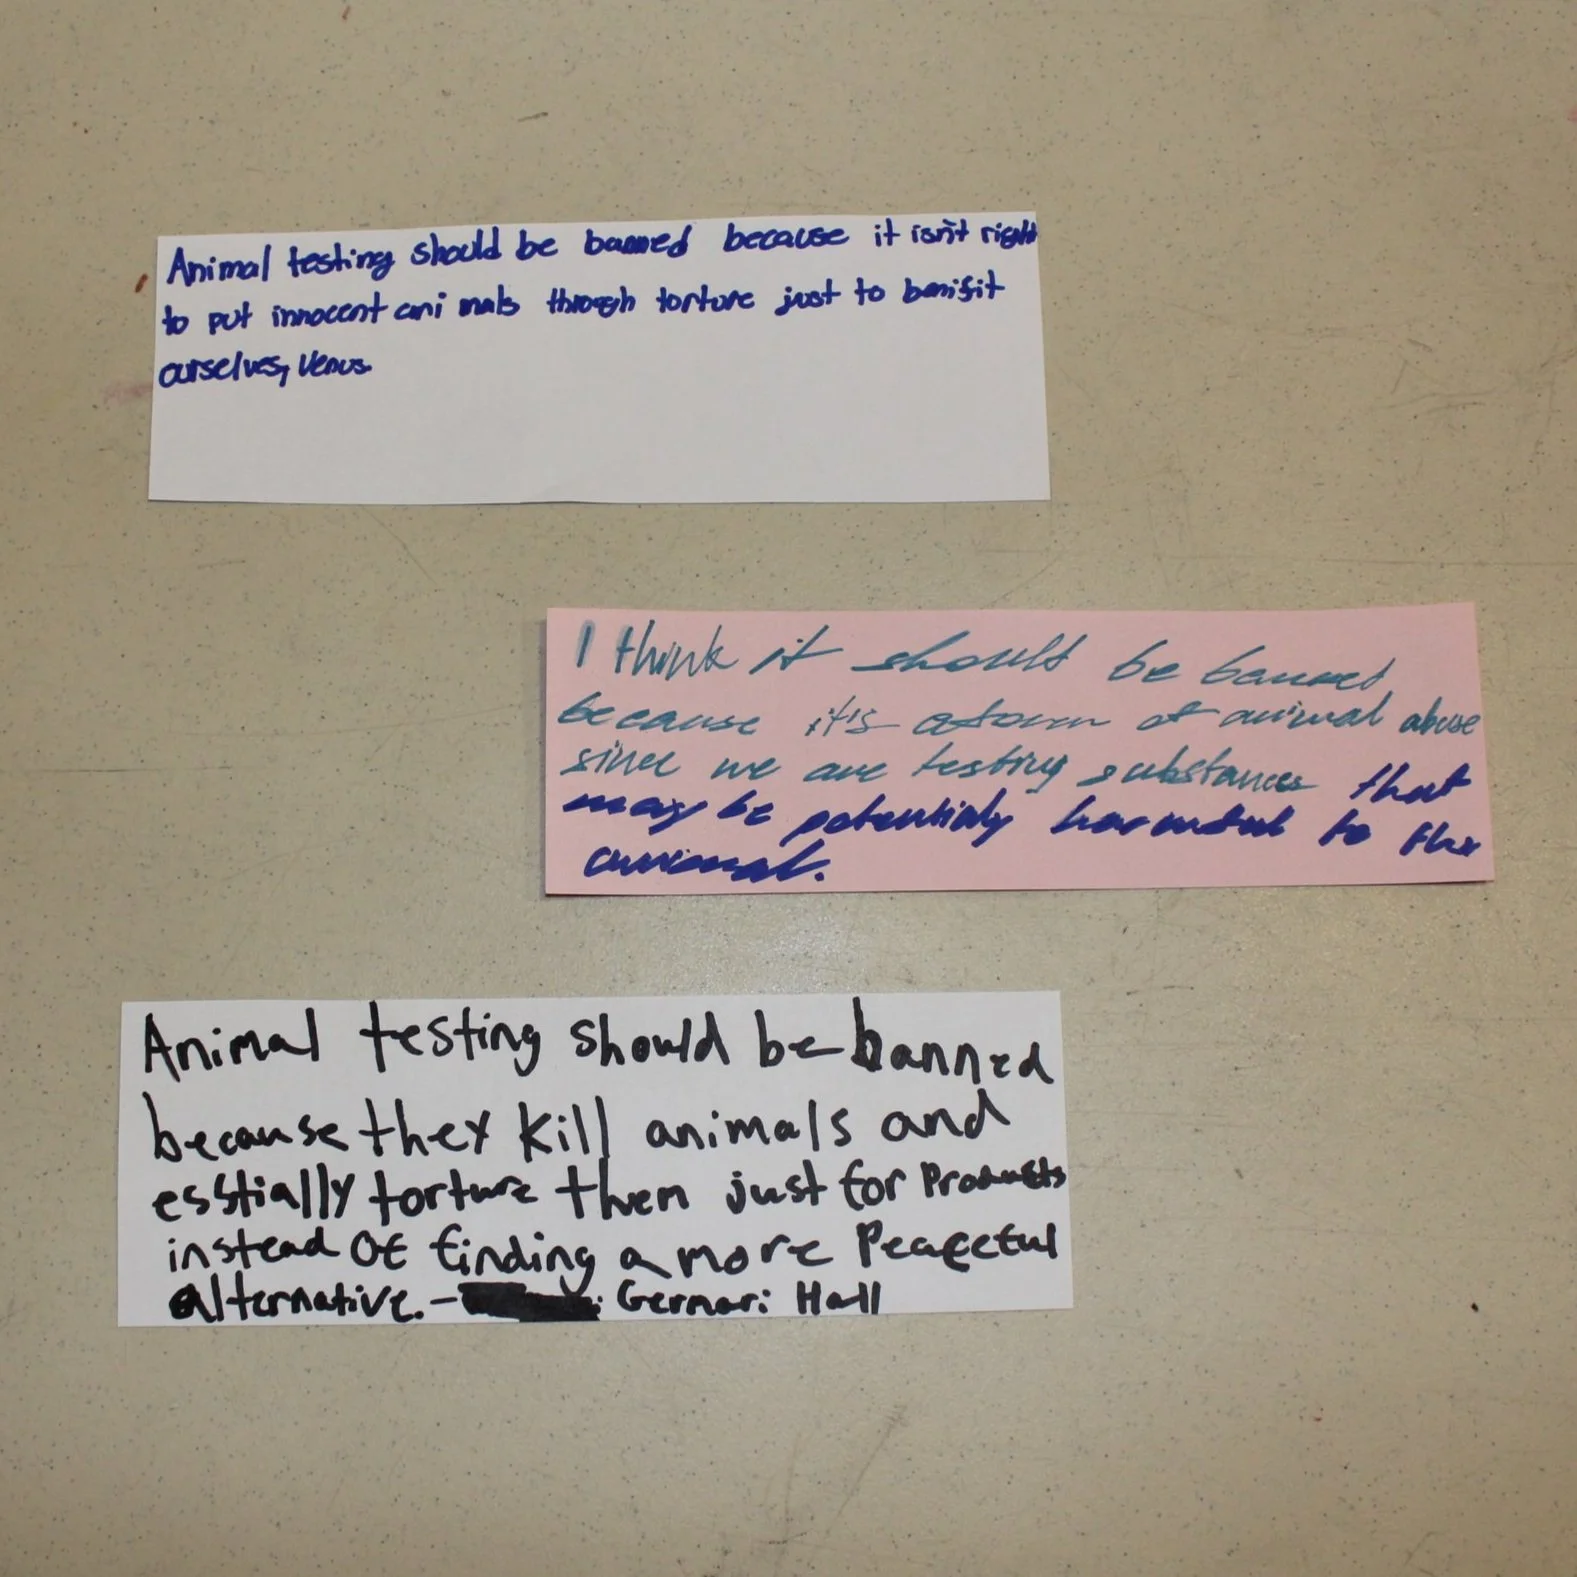 Animal testing should be banned because it isn't right
to put innocent animals through torture just to benifit
ourselves, Venus.
I think it should be banned
because it's a form of animal abuse
since we are testing substances that
may be potentialy harmful to the
animal.
Animal testing should be banned
because they kill animals and
esstially torture them just for Products
instead of finding a more Peaceful
alternative. - Gernari Hall